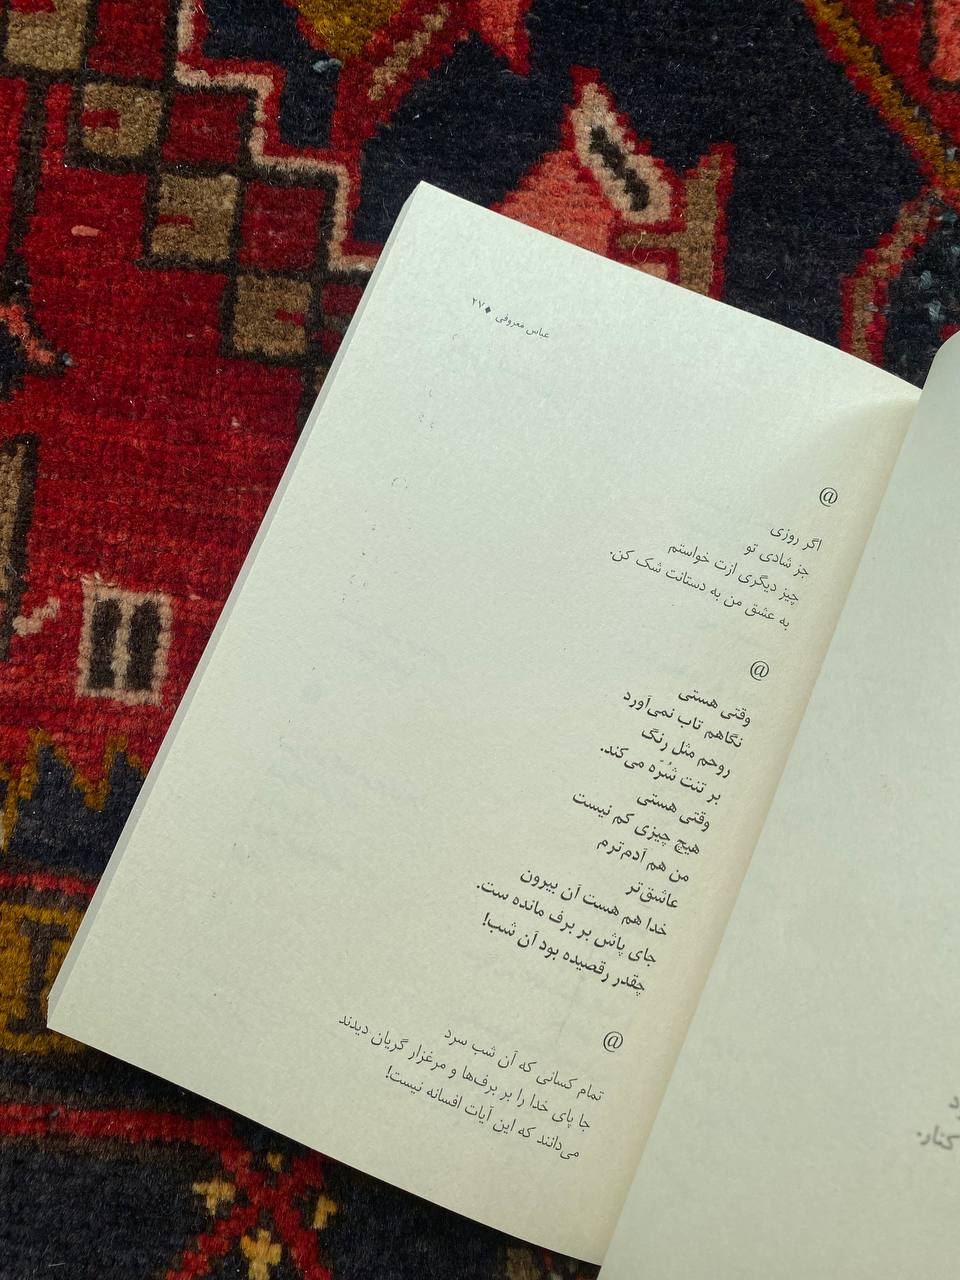 عباس معروفی ◆ ۲۷
@
اگر روزی
جز شادی تو
چیز دیگری ازت خواستم
به عشق من به دستانت شک کن.
@
وقتی هستی
نگاهم تاب نمی‌آورد
روحم مثل رنگ
بر تنت شُرّه می‌کند.
وقتی هستی
هیچ چیزی کم نیست
من هم آدم‌ترم
عاشق‌تر
خدا هم هست آن بیرون
جای پاش بر برف مانده ست.
چقدر رقصیده بود آن شب!
@
تمام کسانی که آن شب سرد
جا پای خدا را بر برف‌ها و مرغزار گریان دیدند
می‌دانند که این آیات افسانه نیست!
کنار.